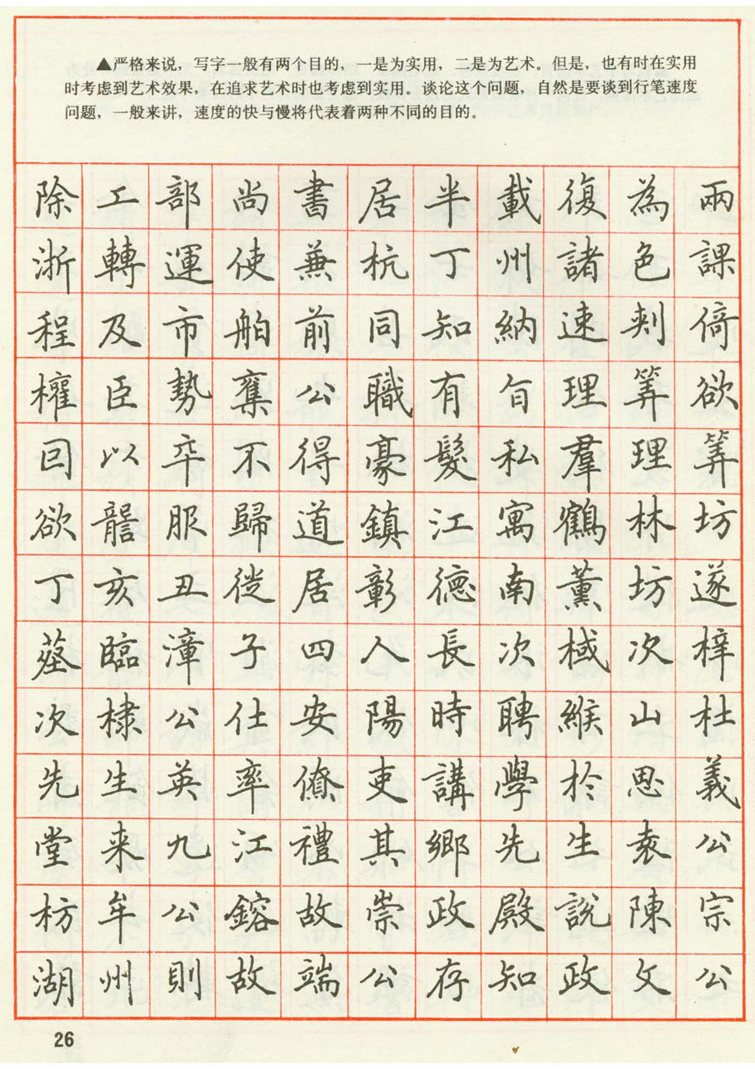 ▲严格来说，写字一般有两个目的，一是为实用，二是为艺术。但是，也有时在实用
时考虑到艺术效果，在追求艺术时也考虑到实用。谈论这个问题，自然是要谈到行笔速度
问题，一般来讲，速度的快与慢将代表着两种不同的目的。
除工部尚書居半載復為兩
浙轉運使兼杭丁州諸色課
程及市舶前同知納速剌倚
權臣勢奪公職有旨理筭欲
回以卒不得豪髮私羣理筭
欲讋服歸道鎮江寓鶴林坊
丁亥丑徙居彰德南薰坊遂
墓臨漳子四人長次棫次梓
次棣公仕安陽時聘緱山杜
先生英率僚吏講學於思義
堂来九江禮其鄉先生袁公
枋牟公鎔故崇政殿說陳宗
湖州則故端公存知政文公
26